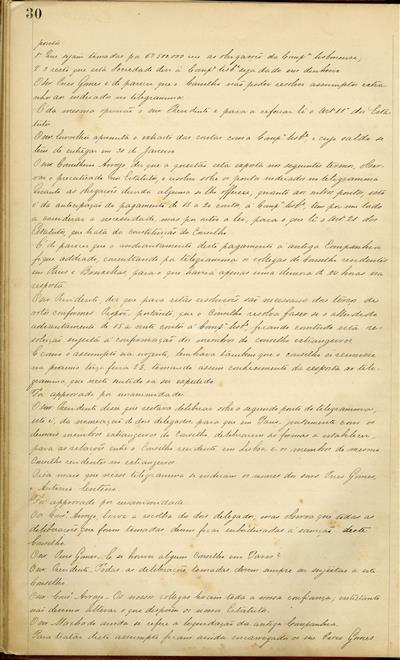 30
ponto
1º Em sejam tomadas pa 6:500.000 rs as obrigações da Compª lisbonense,
2º o resto que esta Sociedade der á Compª lisbª seja dado em dinheiro
O Snr. Pires Gomes é de parecer que o Conselho não póde resolver assumptos extra-
nhos ao indicado no telegramma
É da mesma opinião o snr. Presidente e para a reforçar lê o artº 11º dos Esta-
tutos
O snr. Carvalho apresenta o extracto das contas com a Compª lisbª e cujo saldo se
tem de entregar em 31 de Janeiro
O snr. Conselheiro Arroyo diz que a questão está exposta nos seguintes termos,
quanto ás obrigações duvida alguma se lhe offerece, quanto ao outro ponto, isto
é da antecipação do pagamento de 15 a 20 contos á Compª lisbª, tem por um lado
a considerar a necessidade, mas por outro a lei, para o que lê o artº 21 dos
Estatutos, que trata da constituição do Conselho
É de parecer que o adiantamento deste pagamento á antiga Companhia
fique addiado, consultando por telegramma os collegas do Conselho residentes
em Paris e Bruxellas, para o que haverá apenas uma demora de 24 horas na
resposta
O snr. Presidente, diz que para estas resoluções são necessarios dois terços de
votos conformes. Propõe, portanto, que o Conselho resolva fazer-se o alludido
adeantamento de 15 a vinte contos á Compª lisbª, ficando comtudo esta re-
solução sujeita á confirmação dos membros do conselho extrangeiros
E como o assumpto era urgente, lembrava tambem que o conselho se reunisse
na proxima terça feira 22, tomando assim conhecimento da resposta ao tele-
gramma, que neste sentido vae ser expedido
Foi approvado por unanimidade
O snr. Presidente disse que restava deliberar sobre o segundo ponto do telegramma,
isto é, da nomeação de dois delegados, para que em Paris, juntamente com os
demais membros extrangeiros do Conselho deliberassem as formas a estabelecer,
para as relações entre o Conselho residente em Lisboa e os membros do mesmo
Conselho residentes no extrangeiro
Diz mais que nesse telegramma se indicam os nomes dos snrs. Pires Gomes,
e Antonio Centeno
Foi approvado por unanimidade
O Consº Arroyo, louva a escolha dos dois delegados, mas observa que todas as
deliberações que forem tomadas devem ficar subordinadas á sancção deste
Conselho
O snr. Pires Gomes - E se houver algum Conselho em Paris?
O snr. Presidente. Todas as deliberações tomadas devem sempre ser sujeitas a este
Conselho
O snr. Consº Arroyo - Os nossos collegas levam toda a nossa confiança, entretanto
não devemos alterar o que dispõem os nossos Estatutos.
O snr. Machado ainda se refere á liquidação da antiga Companhia.
Para tratar deste assumpto ficam ainda encarregados os snrs. Pires Gomes